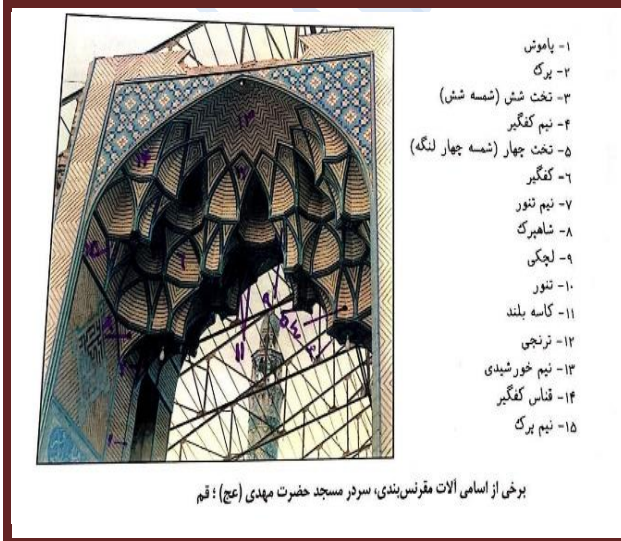 ۱- پاموش
۲- پرک
۳- تخت شش (شمسه شش)
۴- نیم کفگیر
۵- تخت چهار (شمسه چهار لنگه)
۶- کفگیر
۷- نیم تنور
۸- شاهپرک
۹- لچکی
۱۰- تنور
۱۱- کاسه بلند
۱۲- ترنجی
۱۳- نیم خورشیدی
۱۴- قناس کفگیر
۱۵- نیم پرک
برخی از اسامی آلات مقرنس‌بندی، سردر مسجد حضرت مهدی (عج) ؛ قم